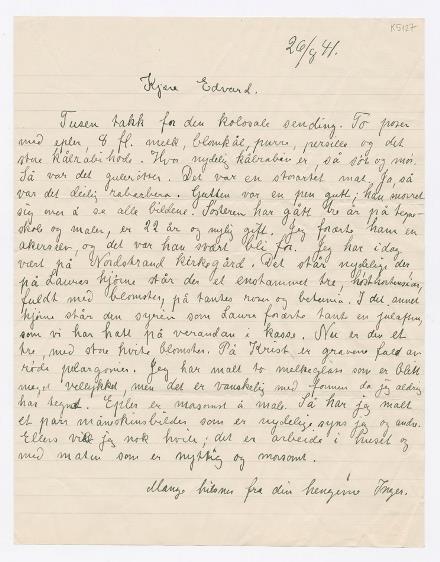 K5127
26/9 41.
Kjære Edvard.
Tusen takk for den kolosale sending. To poser
med epler, 8 fl. melk, blomkål, purre, persille og det
store kålrabihode. Hvor nydelig kålraben er, så søt og mør.
Så var det gulerøtter. Det var en storartet mat. Ja, så
var det deilig rabarbera. Gutten var en pen gutt; han moret
sig med å se alle bildene. Søsteren har gått tre år på tegne-
skole og maler, er 22 år og nylig gift. Jeg forærte ham en
akvarell, og det var han svært bli for. Jeg har idag
vært på Nordstrand kirkegård. Det står nydelig der
på Lauras hjørne står der et enstammet tre,
fuldt med blomster, på tantes roser og betunia. I det annet
hjørne står den syrin som Laura forærte tante en julaften,
som vi har hatt på verandaen i kasse. Nu er der et
tre, med store hvite blomster. På Krist er gravene fulde av
røde pelargonier. Jeg har malt to melkeglass som er blitt
meget vellykket, men det er vanskelig med formen da jeg aldrig
har tegnet. Epler er morsomt å male. Så har jeg malt
et par måneskinsbilder, som er nydelige, syns jeg og andre.
Ellers vil jeg nok hvile; det er arbeide i huset og
med maten som er nyttig og morsomt.
Mange hilsner fra din hengivne Inger.